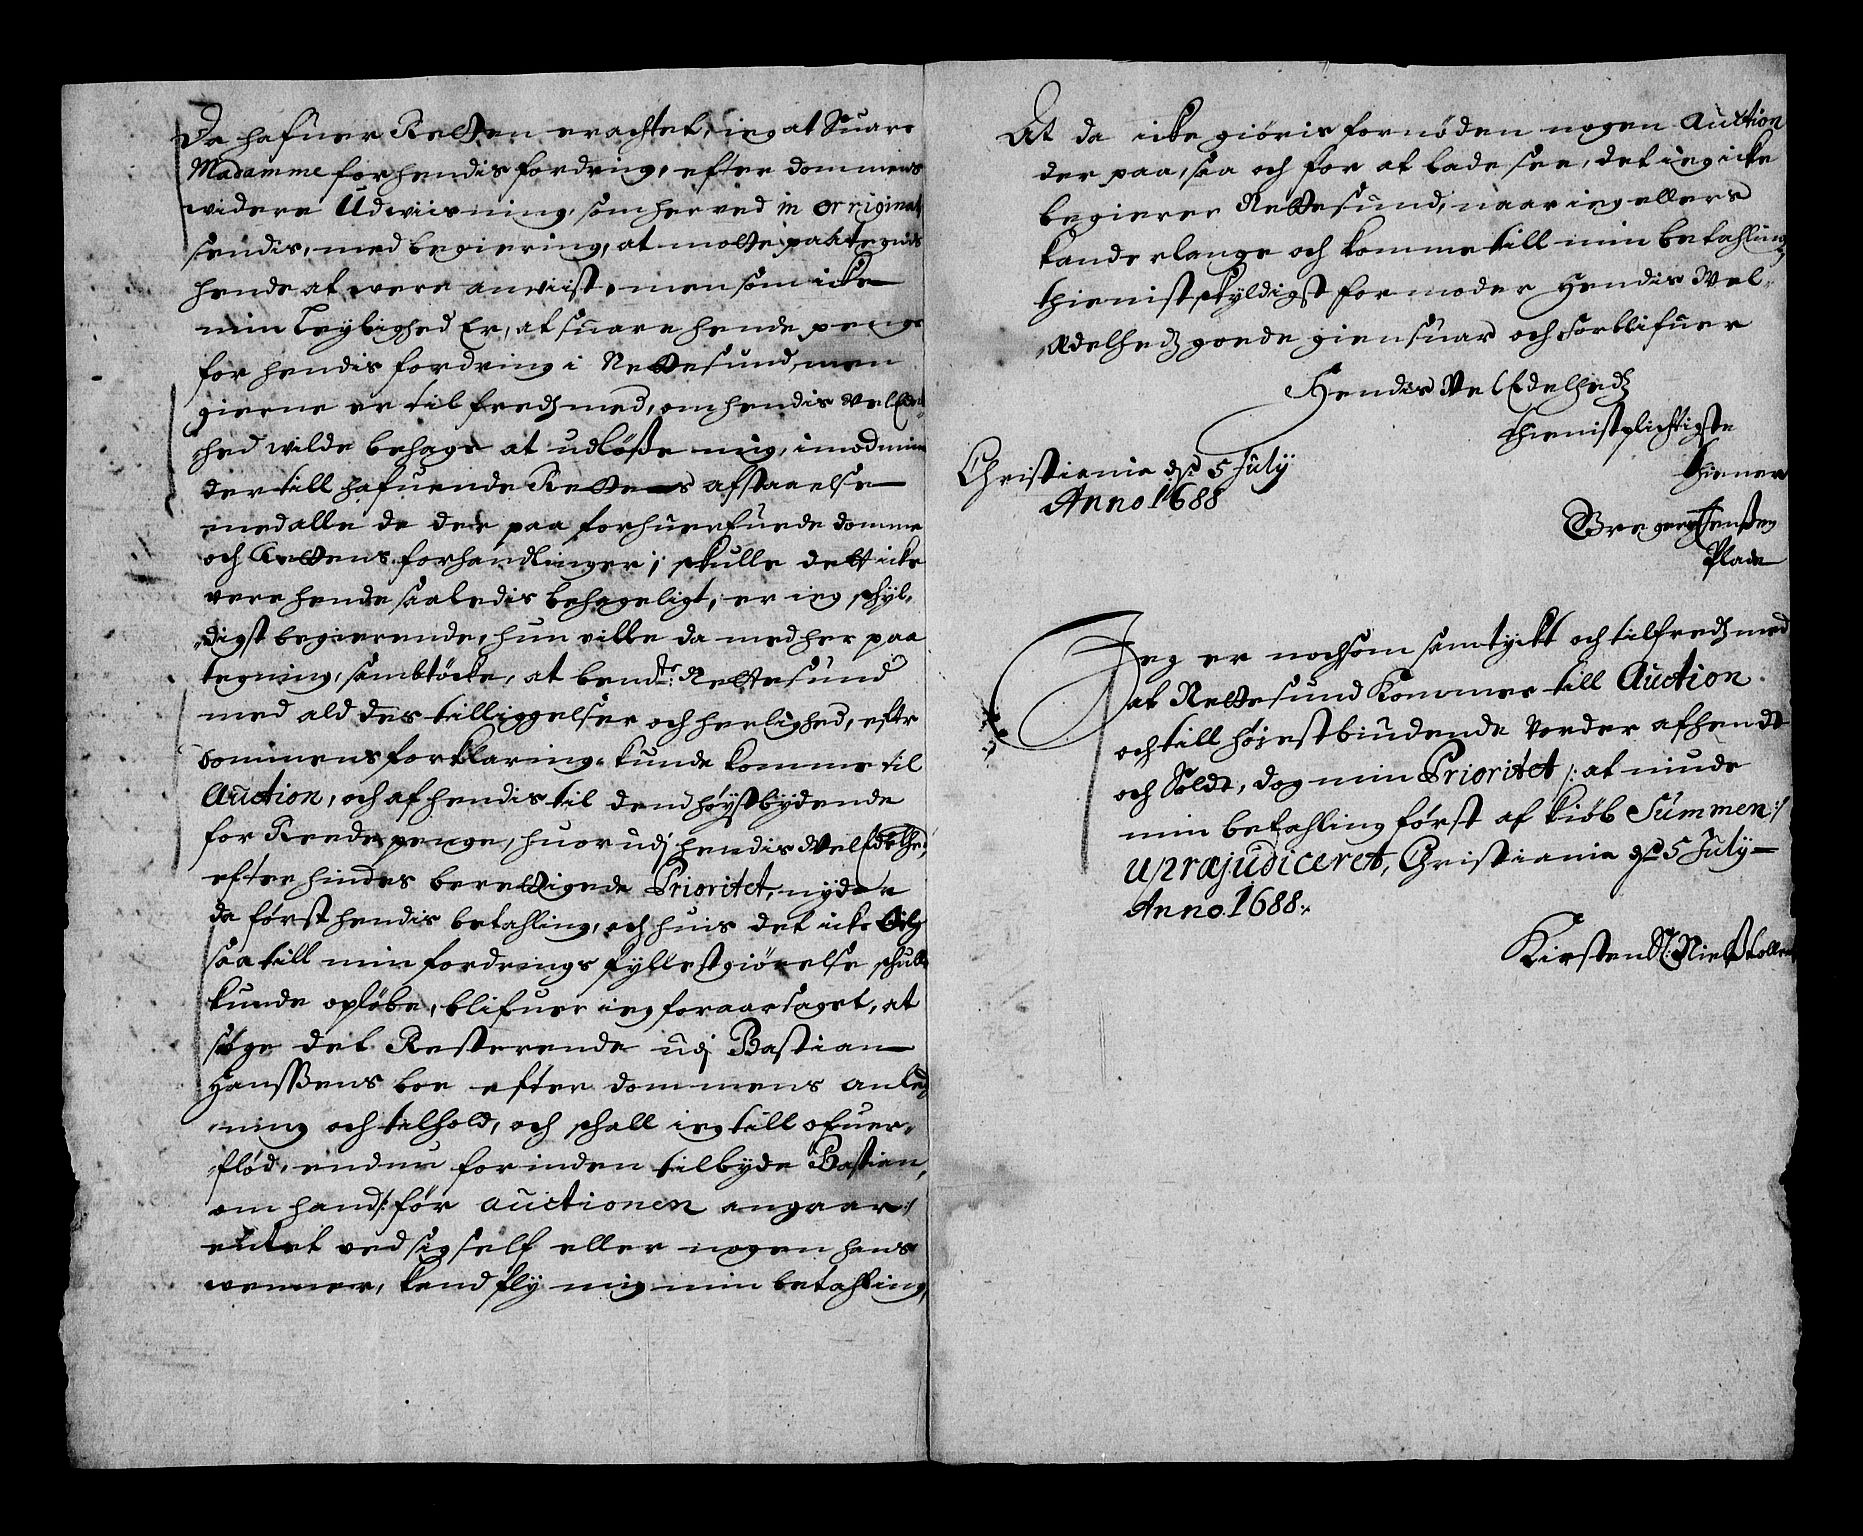 Da hafuer Retten erachtet, ieg at Suare
Madamme for hendis fordring, efter dommens
widere Udwiisning, som herved in orriginal
sendis, med begiering, at motte paategnis
hende at were anwiist, men som icke
min Leylighed Er, at suare hende penge
for hendis fordring i Nettesund, men
gierne er tilfredz med, om hendis Vel Edel¬
hed wilde behage at udløße mig, imod min
der till hafuende Rettens afstaaelse
med alle de der paa forhuerfuede domme
och Rettens forhandlinger; skulle dett icke
vere hende saaledis behageligt, er ieg skyl¬
digst begierende, hun ville da med her paa
tegning, sambtøcke, at bendte: Nettesund
med ald des tilliggelser och herlighed, eftr
dommens forklaring, kunde komme til
Auction, och afhendis til dend høystbydende
for Reede penge, huor udj hendis Wel Edelhed,
efter hindes berettigede Prioritet, nyder
da først hendis betahling, och huis det icke
saa till min fordrings fyllestgiørelse skulle
kunde opløbe, blifuer ieg foraarsaget, at
søge det Resterende udj Bastian
Hanssens boe efter dommens anled¬
ning och tilhold, och skall ieg till ofuer¬
flød, endnu forinden tilbyde Bastian,
om hand /: før auctionen angaar :/
entet ved sig self eller nogen hans
venner, kand fly mig min betahling,
At da icke giøris fornøden nogen Auction
der paa, saa och for at lade see, det ieg icke
begierer Nettesund, naar ieg ellers
kand erlange och komme till min betahling
thienistskyldigst formoder Hendis Wel¬
Edelhedz goede giensuar och forblifuer
Hendis Vel Edelhedz
thienistplichtigste
thiener
Christiania d 5 July
Anno 1688
Gregers Jenßen
Plade
Jeg er nochsom samtyckt och tilfredz med
at Nettesund kommer till Auction
och till høiestbiudende vorder afhendt
och Soldt, dog min Prioritet /: at niude
min betahling først af kiøb Summen :/
upræjudiceret, Christiania d 5 July
Anno 1688
Kirsten Sl: Nielß